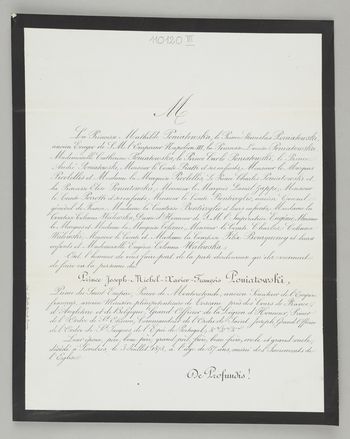 10120 III
M
La Princesse Mathilde Poniatowska, le Prince Stanislas Poniatowski,
ancien Ecuyer de S.M. l'Empereur Napoléon III, la Princesse Louise Poniatowska,
Mademoiselle Catherine Poniatowska, le Prince Carlo Poniatowski, le Prince
André Poniatowski, Monsieur le Comte et ses enfants, Monsieur le Marquis
et Madame la Marquise le Prince Charles Poniatowski et
la Princesse Elise Poniatowska, Monsieur le Marquis Luigi Monsieur
le Comte et ses enfants, Monsieur le Comte ancien Consul
général de France, Madame la Comtesse et leurs enfants, Madame la
Comtesse Colonna Walewska, Dame d'Honneur de S.M. l'Impératrice Eugénie, Monsieur
le Marquis et Madame la Marquise Colonna, Monsieur le Comte Charles Colonna
Walewski, Monsieur le Comte et Madame la Comtesse Félix Bourqueney et leurs
enfants et Mademoiselle Eugénie Colonna Walewska;
Ont l'honneur de vous faire part de la perte douloureuse qu'ils viennent
de faire en la personne du
Prince Joseph-Michel-Xavier-François Poniatowski,
Prince du Saint Empire, Prince de Monterotondo, ancien Sénateur de l'Empire
français, ancien Ministre plénipotentiaire de Toscane près des Cours de France,
d'Angleterre et de Belgique, Grand Officier de la Légion d'Honneur, Prieur
de l'Ordre de St Etienne, Commandeur de l'Ordre de Saint Joseph, Grand Officier
de l'Ordre de St Jacques de l'Epée de Portugal, &a &a &a
Leur époux, père, beau-père, grand père, frère, beau-frère, oncle et grand oncle,
décédé à Londres, le 3 Juillet 1873, à l'âge de 57 ans, muni de l'Sacrements de
l'Eglise.
De Profundis!